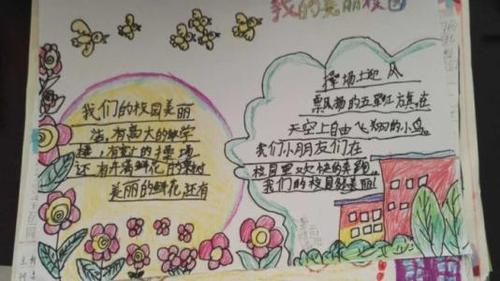 我的美丽校园
我们的校园美丽
洁,有高大的教学
楼,有宽广的操场,
还有开满鲜花的果树
美丽的鲜花还有
操场上迎风
飘扬的五星红旗,在
天空上自由飞翔的小鸟。
我们小朋友们在
校园里欢快的奔跑,
我们的校园多美丽!